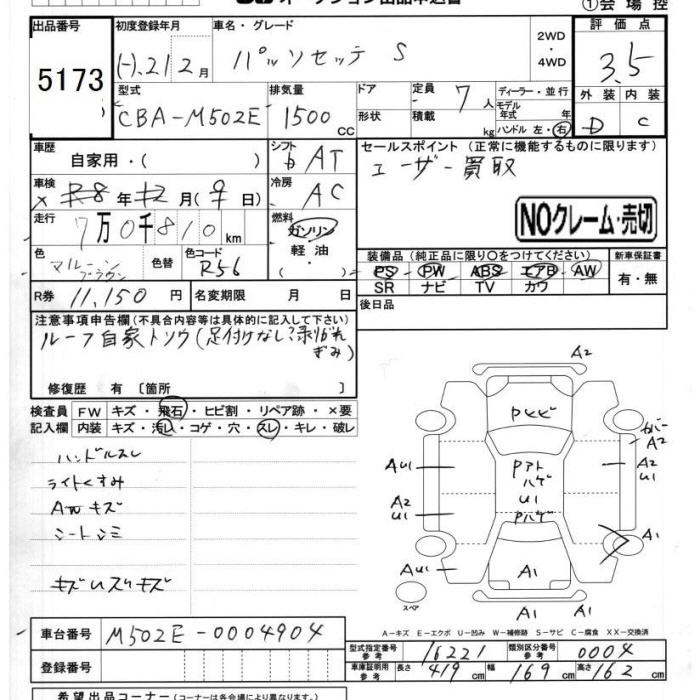 ①会場控
出品番号 初度登録年月 車名・グレード 2WD ・ 4WD 評価点
5173 (-).21/2月 パッソセッテ S 3.5
型式 排気量 ドア 定員 ディーラー・並行 外装 内装
CBA-M502E 1500cc 形状 積載 7人 kg モデル年式 年 ハンドル 左・右 D C
車歴 自家用・( ) シフト AT セールスポイント (正常に機能するものに限ります)
ユーザー買取
車検 年 月( 日) 冷房 AC
走行 7万0千810km 燃料 ガソリン 軽油 ・( )
NOクレーム・売切
色 マルーンブラウン 色替 色コード R56
装備品 (純正品に限り〇をつけてください) 新車保証書
PS PW ABS エアB AW 有・無
SR ナビ TV カワ
R券 11,150円 名変期限 月 日
後日品
注意事項申告欄 (不具合内容等は具体的に記入して下さい)
ルーフ自家トソウ(足付けなし?剥がれぎみ)
修復歴 有 [箇所 ]
検査員記入欄 FW キズ・飛石・ヒビ割・リペア跡・×要
内装 キズ・汚れ・コゲ・穴・スレ・キレ・破レ
ハンドルスレ
ライトくすみ
AWキズ
シートシミ
A2
Pヒビ
カバーA2
AU1 Pアト ハゲ U1 A2 U1
A2 U1 Pハゲ
A1
AU1 A1
スペア A1 A1
A-キズ E-エクボ U-凹み W-補修跡 S-サビ C-腐食 XX-交換済
車台番号 M502E-0004904
型式指定番号 参考 16221 類別区分番号 参考 0004
登録番号
車庫証明用 参考 長さ 419cm 幅 169cm 高さ 162cm
希望出品コーナー (コーナーは各会場により異なります。)